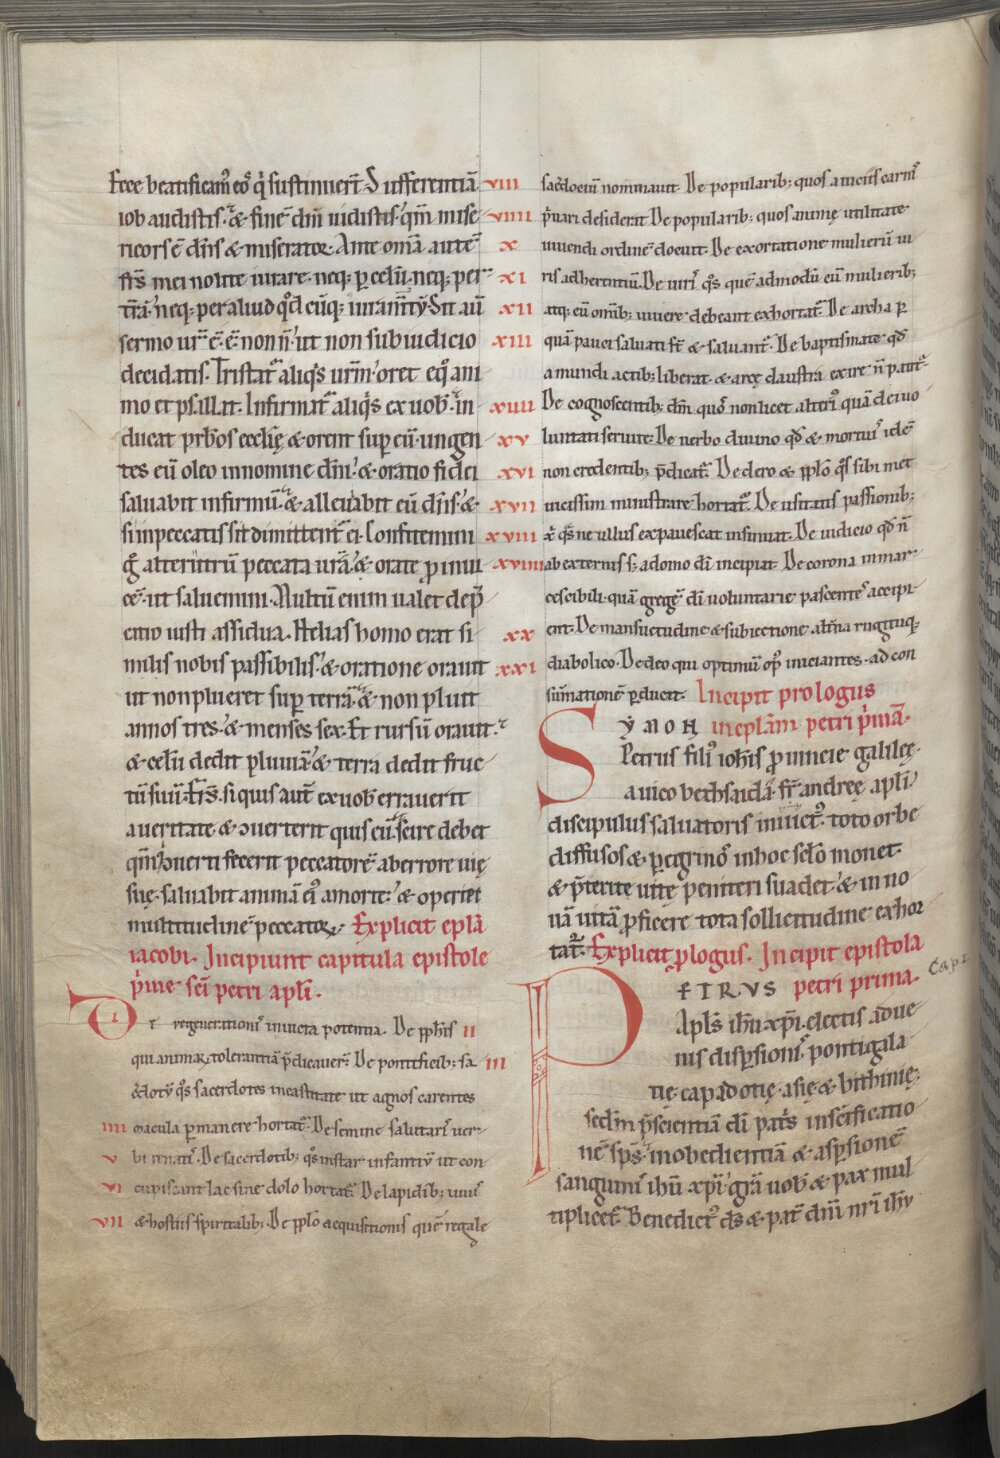 Ecce beatificam᷒ eo᷒ q̇ sustinuer̄t Sufferentiā
iob audistis. & finē dn̄i uidistis. qm̄ mise
ricors ē dn̄s & miserator. Ante om̄a autē
frs̄ mei nolite iurare. neq; p̄ celū. neq; per
tr̄ā. neq; per aliud qd̄ cūq; Sit aū
sermo ur̄. ē. ē. non n̄. ut non sub iudicio
decidatis. Tristat᷒ aliq̇s urm̄. oret eq̇ ani
mo et psallat. Infirmat᷒ aliq̇s ex uob̄. in
ducat prb̄os eccl̄ię & orent sup̄ eū. ungen
tes eū oleo in nomine dn̄i. & oratio fidei
saluabit infirmū. & alleuabit eū dn̄s. &
si in peccatis sit dimittent᷒ ei. Confitemini
g̊ alterutrū peccata ur̄a. & orate p̄ inui
cē. ut saluemini. Multū enim ualet dep̄
catio iusti assidua. Helias homo erat si
milis nobis passibilis. & oratione orauit
ut non plueret sup̄ terrā. & non pluit
annos tres. & menses sex. Et rursū orauit.
& celū dedit pluuiā. & terra dedit fruc
tū suū. Frs̄. si quis aut̄ ex uob̄ errauerit
a ueritate & ɔuerterit quis eū. scire debet
qm̄ ɔuerti fecerit peccatorē ab errore uię
suę. saluabit animā ei᷒ a morte. & operiet
multitudinē peccatoꝝ. Explicit epl̄a
iacobi. Incipiunt capitula epistole
p̄me sc̄i petri apl̄i.
De regenerationis inuicta potentia. De pph̄is II
qui animaꝝ tolerantiā p̄dicauer̄. De pontificib; sa III
c̄dotū q̊s sacerdotes in castitate ut agnos carentes
IIII macula p̄manere hortat᷒. De semine salutari uer
V bi renati. De sacerdotib; q̊s instar infantiū ut con
VI cupiscant lac sine dolo hortat᷒. De lapidib; uiuis
VII & hostiis spiritalib; De pp̄lo acquisitionis quē regale
VIII sac̄dociū nominauit. De popularib; quos a uiciis carnis
VIIII p̄uari desiderat De popularib; quos animę utilitate
X uiuendi ordinē docuit. De exortatione mulierū ui
XI ris adherentiū. De uiris q̊s quē admodū cū mulierib;
XII atq; cū omib; uiuere debeant exhortat᷒. De archa p̄
XIII quā pauci saluati st̄ & saluant᷒. De baptismate qd̄
a mundi actib; liberat. & arcę claustra exire n̄ patit᷒
XIIII De cognoscentib; dn̄i quos̄ non licet alteri᷒ quā dei uo
XV luntati seruire. De uerbo diuino qd̄ & mortuis idē
XVI non credentib; p̄dicat᷒. De clero & pp̄lo q̊s sibi met
XVII inicissim ministrare hortat᷒. De usitatis passionib;
XVIII q̊s ne ullus expauescat insinuat. De iudicio qd̄ n̄
XVIIII ab externis s; a domo dī incipiat. De corona inmar
cescibili quā gregē dī uoluntarie pascentes accipi
XX ent. De mansuetudine & subiectione alt̄na rugituq;
XXI diabolico. De deo qui optimū op᷒ iniciantes. ad con
sūmationē p̄ducit. Incipit prologus
SYMON in epl̄am petri p̄mā.
Petrus fili᷒ ioh̄is p̄uincie galileę.
a uico bethsaida. fr̄ andreę apl̄i
discipulus saluatoris inuict᷒. toto orbe
diffusos & p̄egrinos in hoc sclō monet.
& p̄terite uitę peniteri suadet. & in no
uā uitā p̄ficere tota sollicitudine exhor
tat᷒. Explicit p̄logus. Incipit epistola
PETRUS petri prima. Cap. 1
Apls̄ ih̄u xp̄i. electis adue
nis disp̄sionis. ponti galа
tię capadotię. asię & bithinię.
secdm̄ p̄scientiā dī patris in scīficatio
nē sps̄. in obedientiā & asp̄sionē
sanguinis ih̄u xp̄i. gr̄a uob̄ & pax mul
tiplicet᷒. Benedict᷒ ds̄ & pat̄ dn̄i nr̄i ih̄u